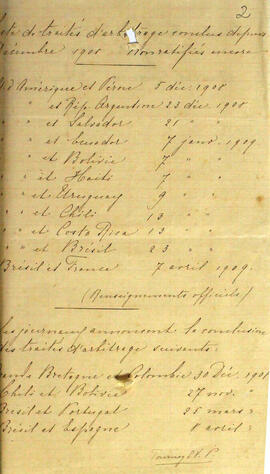 2
de traités d'arbitrage conclus depuis
décembre 1908 Non ratifiés encore
d'Amérique et Pérou 5 déc. 1908
" et Rép. Argentine 23 déc. 1908
" " et Salvador 21 " "
" " et Ecuador 7 janv. 1909
" " et Bolivie 7 " "
" " et Haïti 7 " "
" " et Uruguay 9 " "
" " et Chili 13 " "
" " et Costa Rica 13 " "
" " et Brésil 23 " "
Brésil et France 7 avril 1909.
(Renseignements officiels)
Les journaux annoncent la conclusion
des traités d'arbitrage suivants:
Bretagne et Colombie 30 Déc. 190
Chili et Bolivie 27 nov. "
Brésil et Portugal 25 mars "
Brésil et Espagne 8 avril "